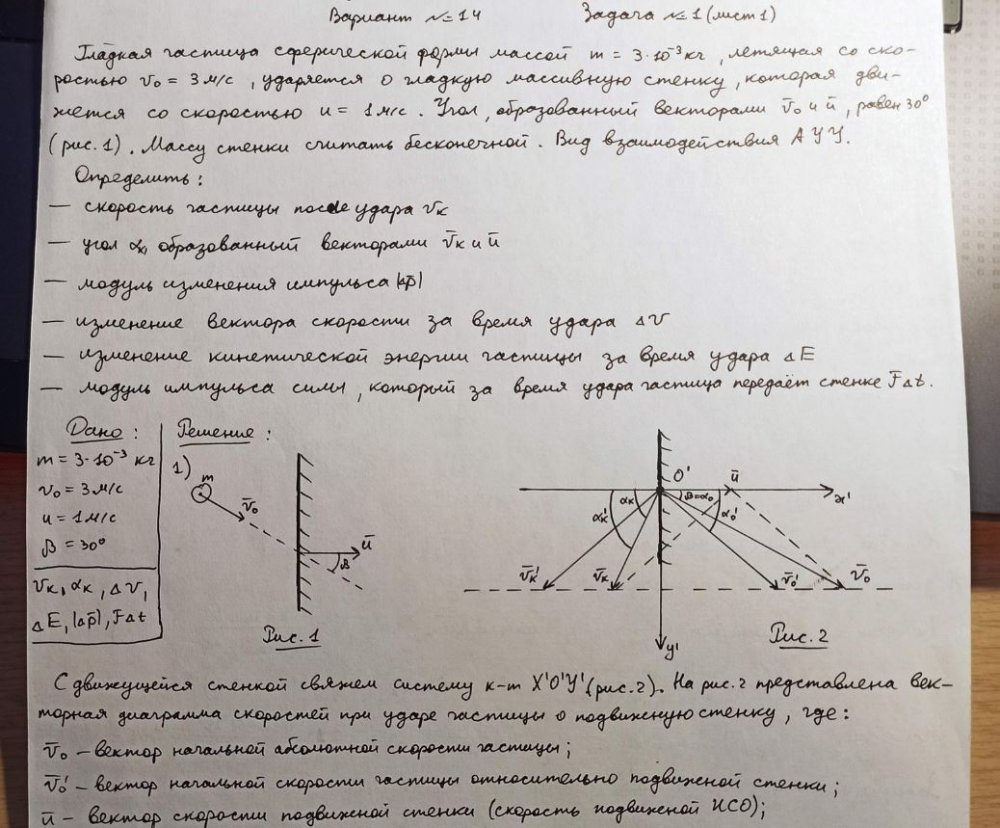 Вариант №14 Задача №1 (лист 1)
Гладкая частица сферической формы массой m = 3·10⁻³ кг, летящая со ско-
ростью v₀ = 3 м/с, ударяется о гладкую массивную стенку, которая дви-
жется со скоростью u = 1 м/с. Угол, образованный векторами v̄₀ и ū, равен 30°
(рис. 1). Массу стенки считать бесконечной. Вид взаимодействия АУУ.
Определить:
— скорость частицы после удара vк
— угол αк, образованный векторами v̄к и ū
— модуль изменения импульса |Δp̄|
— изменение вектора скорости за время удара Δv
— изменение кинетической энергии частицы за время удара ΔE
— модуль импульса силы, который за время удара частица передаёт стенке F̄Δt.
Дано:
m = 3·10⁻³ кг
v₀ = 3 м/с
u = 1 м/с
β = 30°
vк, αк, Δv,
ΔE, |Δp̄|, FΔt
Решение:
1)
m
v̄₀
ū
β
Рис. 1
O'
ū
x'
αк
αк'
β=α₀
α₀'
v̄к'
v̄к
v̄₀'
v̄₀
y'
Рис. 2
С движущейся стенкой свяжем систему к-т X'O'Y' (рис. 2). На рис. 2 представлена век-
торная диаграмма скоростей при ударе частицы о подвижную стенку, где:
v̄₀ – вектор начальной абсолютной скорости частицы;
v̄₀' – вектор начальной скорости частицы относительно подвижной стенки;
ū – вектор скорости подвижной стенки (скорость подвижной ИСО);